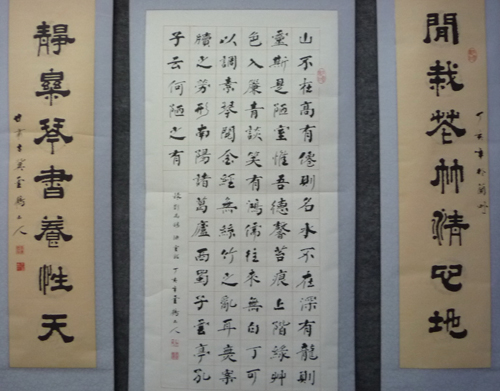 閒栽花竹清心地
丁亥年
山不在高有僊則名水不在深有龍則
靈斯是陋室惟吾德馨苔痕上階綠艸
色入簾青談笑有鴻儒往來無白丁可
以調素琴閱金經無絲竹之亂耳無案
牘之勞形南陽諸葛廬西蜀子雲亭孔
子云何陋之有
錄劉禹錫陋室銘 丁亥年
靜琴書養性天